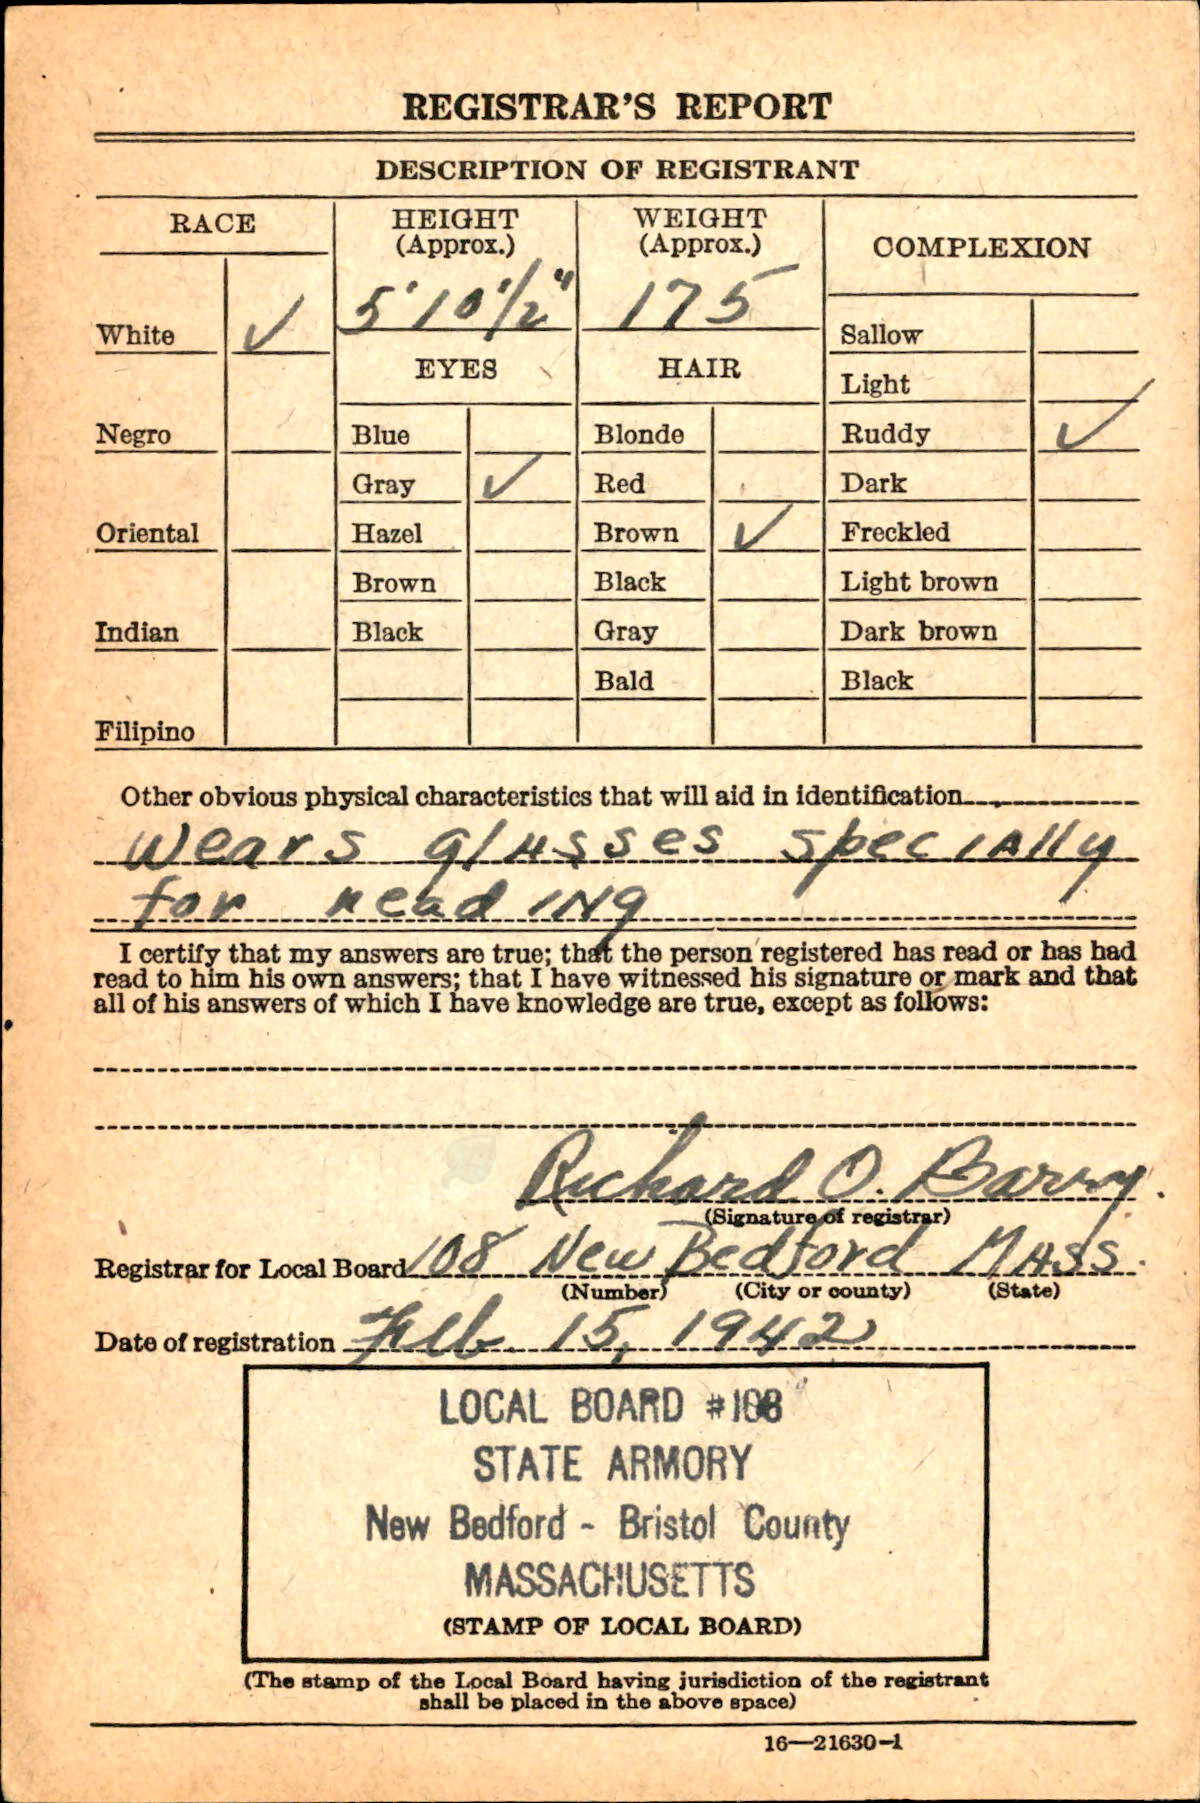 REGISTRAR'S REPORT
DESCRIPTION OF REGISTRANT
RACE
HEIGHT
(Approx.)
WEIGHT
(Approx.)
COMPLEXION
5' 10 1/2"
175
White ✓
Sallow
EYES
HAIR
Light
Negro
Blue
Blonde
Ruddy ✓
Gray ✓
Red
Dark
Oriental
Hazel
Brown ✓
Freckled
Brown
Black
Light brown
Indian
Black
Gray
Dark brown
Bald
Black
Filipino
Other obvious physical characteristics that will aid in identification
Wears glasses specially
for reading
I certify that my answers are true; that the person registered has read or has had
read to him his own answers; that I have witnessed his signature or mark and that
all of his answers of which I have knowledge are true, except as follows:
Richard O. Barry.
(Signature of registrar)
Registrar for Local Board 108 New Bedford Mass.
(Number) (City or county) (State)
Date of registration Feb. 15, 1942
LOCAL BOARD #108
STATE ARMORY
New Bedford - Bristol County
MASSACHUSETTS
(STAMP OF LOCAL BOARD)
(The stamp of the Local Board having jurisdiction of the registrant
shall be placed in the above space)
16—21630-1